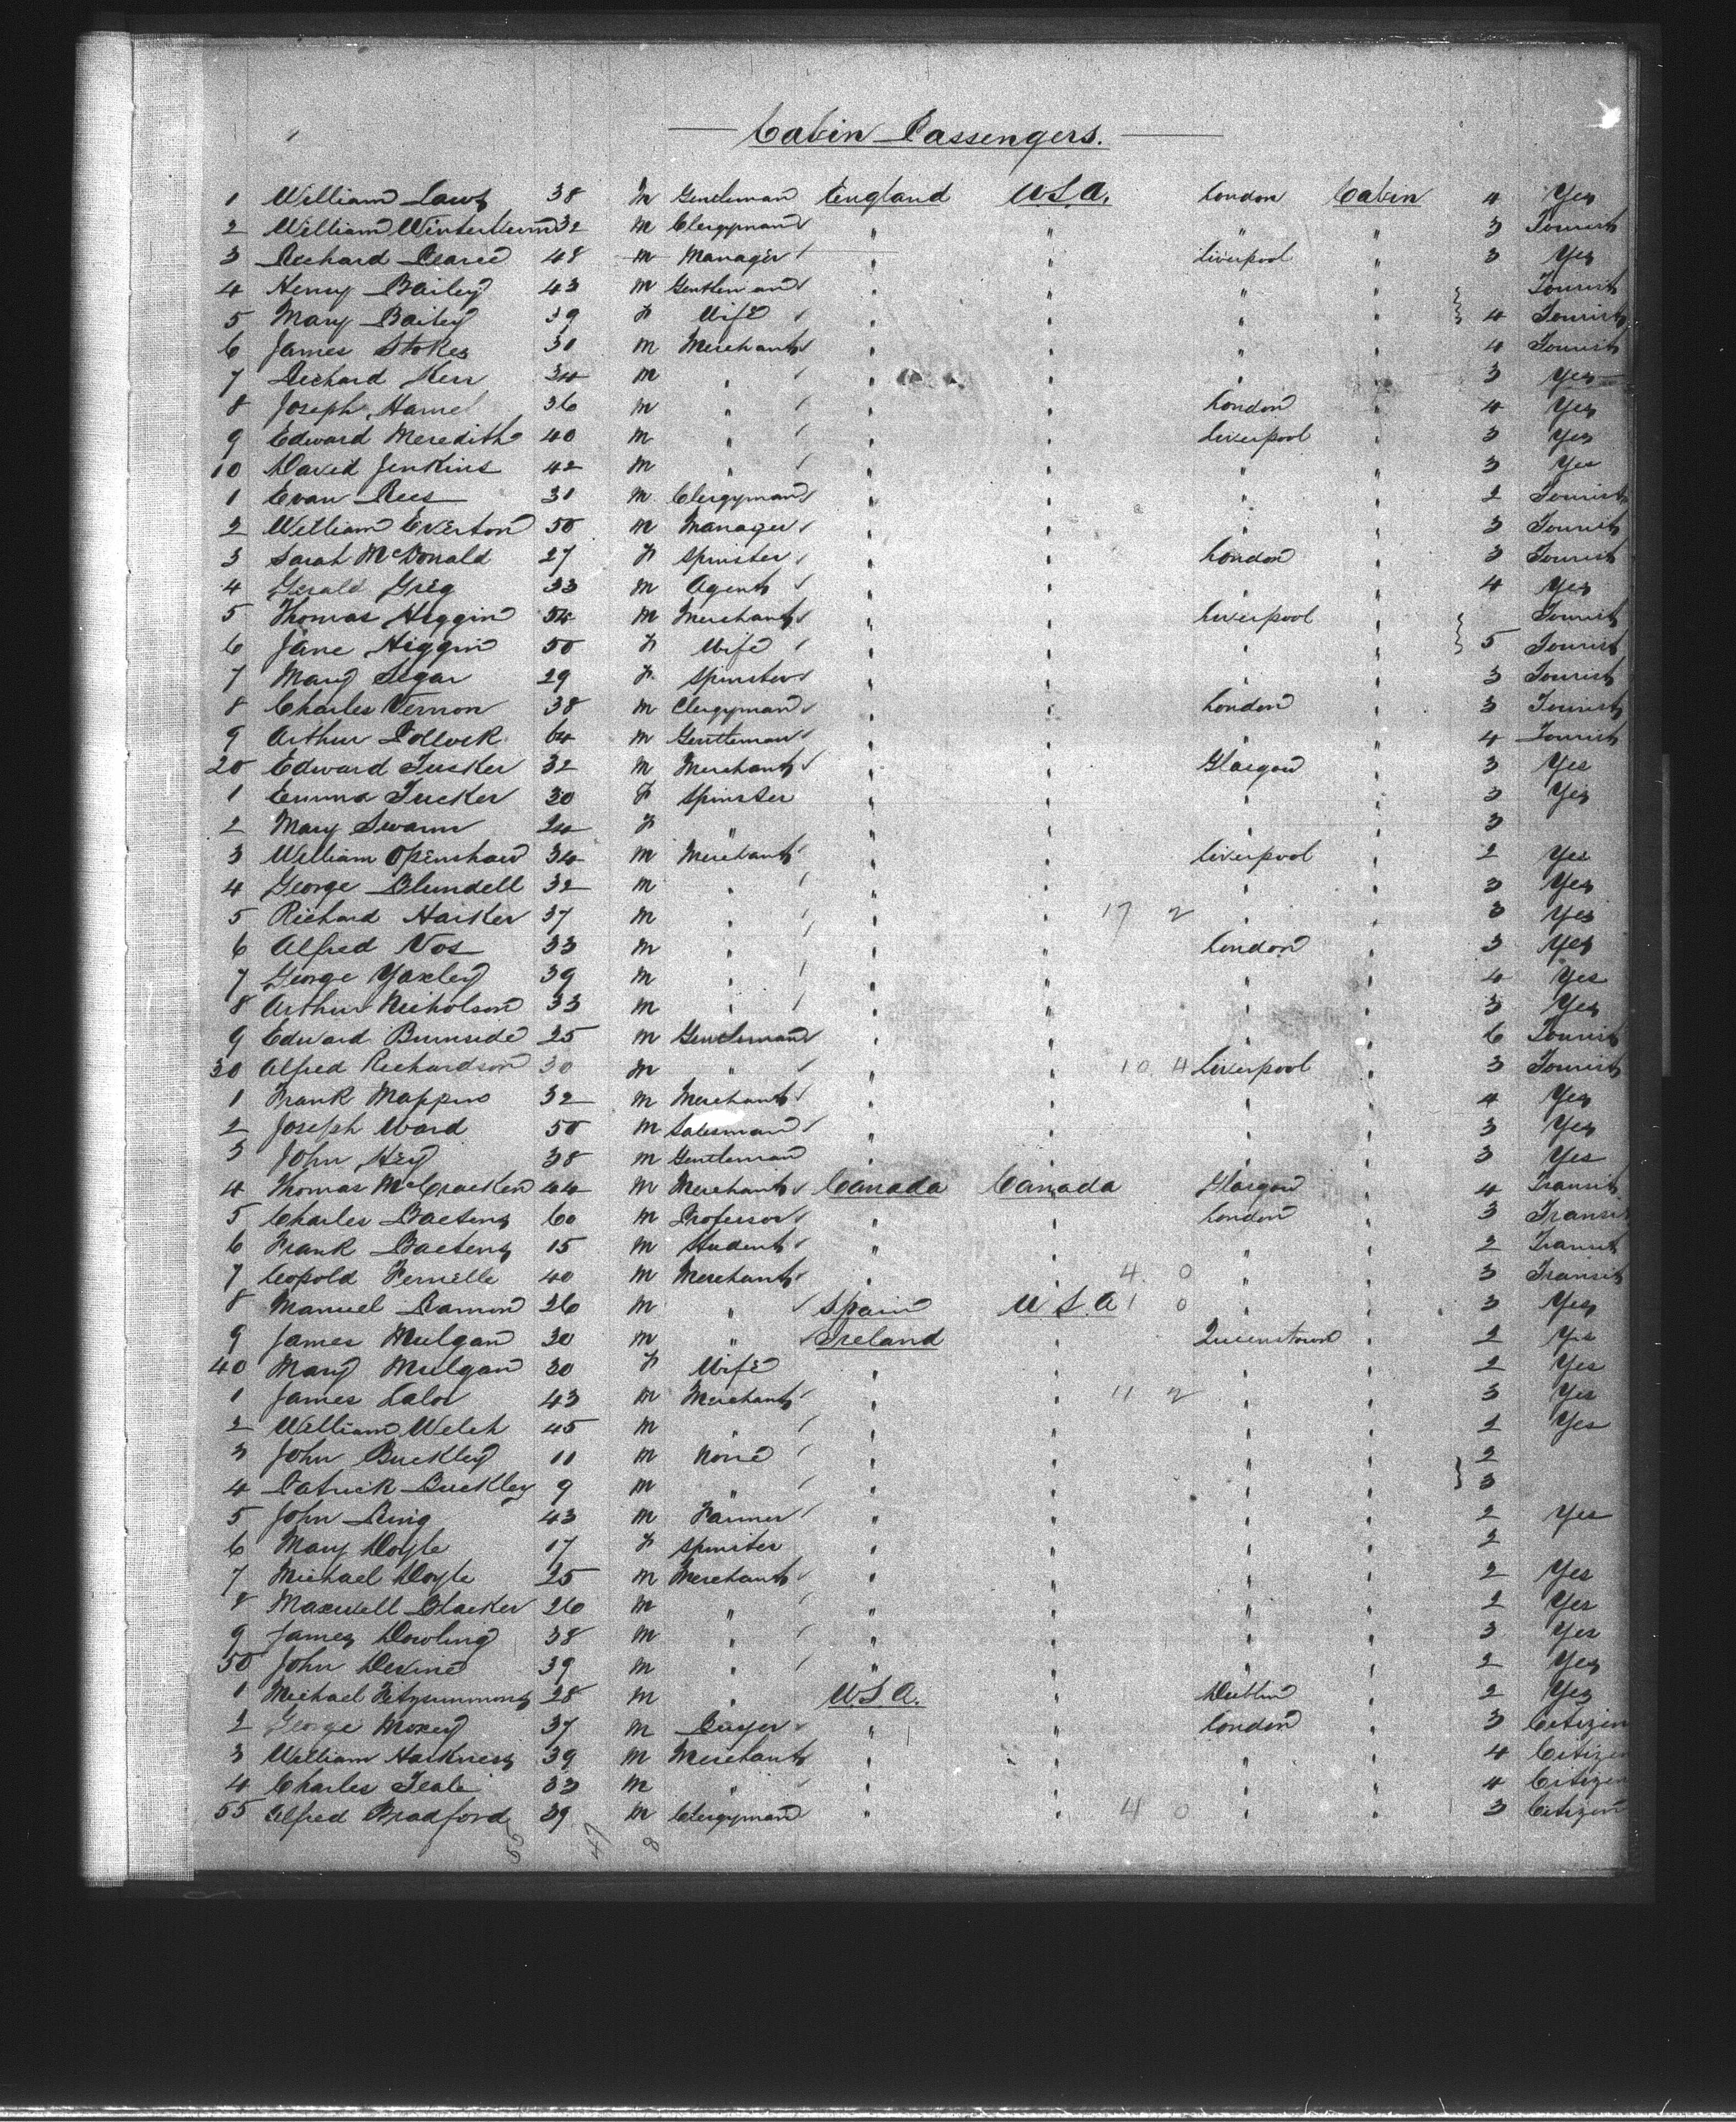 Cabin Passengers.
1 William Laws 38 M Gentleman England U.S.A. London Cabin 4 Yes
2 William 32 M Clergyman " " " " 3 Tourist
3 Richard Pearce 48 M Manager " " Liverpool " 3 Yes
4 Henry Bailey 43 M Gentleman " " " " Tourist
5 Mary Bailey 39 F Wife " " " " 4 Tourist
6 James Stokes 30 M Merchant " " " " 4 Tourist
7 Richard Kerr 34 M " " " " " 3 Yes
8 Joseph Hamel 36 M " " " London " 4 Yes
9 Edward Meredith 40 M " " " Liverpool " 3 Yes
10 David Jenkins 42 M " " " " " 3 Yes
1 Evan Rees 30 M Clergyman " " " " 2 Tourist
2 William Everton 50 M Manager " " " " 3 Tourist
3 Sarah McDonald 27 F Spinster " " London " 3 Tourist
4 Gerald Greg 33 M Agent " " " " 4 Yes
5 Thomas Higgin 54 M Merchant " " Liverpool " Tourist
6 Jane Higgin 50 F Wife " " " " 5 Tourist
7 Mary Segar 29 F Spinster " " " " 3 Tourist
8 Charles Vernon 38 M Clergyman " " London " 3 Tourist
9 Arthur Pollock 64 M Gentleman " " " " 4 Tourist
20 Edward Tucker 32 M Merchant " " Glasgow " 3 Yes
1 Emma Tucker 30 F Spinster " " " " 3 Yes
2 Mary Swann 24 F " " " " " 3
3 William Openshaw 34 M Merchant " " Liverpool " 2 Yes
4 George Blundell 32 M " " " " " 3 Yes
5 Richard Harker 37 M " " " 17 2 " " 3 Yes
6 Alfred Vos 33 M " " " London " 3 Yes
7 George Yaxley 39 M " " " " " 4 Yes
8 Arthur Nicholson 33 M " " " " " 3 Yes
9 Edward Burnside 25 M Gentleman " " " " 6 Tourist
30 Alfred Richardson 30 M " " " 10 4 Liverpool " 3 Tourist
1 Frank Mappin 32 M Merchant " " " " 4 Yes
2 Joseph Ward 50 M Salesman " " " " 3 Yes
3 John Hey 38 M Gentleman " " " " 3 Yes
4 Thomas McCracken 44 M Merchant Canada Canada Glasgow " 4 Transit
5 Charles Baetens 60 M Professor " " London " 3 Transit
6 Frank Baetens 15 M Student " " " " 2 Transit
7 Leopold Fernelle 40 M Merchant " " 4 0 " " 3 Transit
8 Manuel Ramon 26 M " Spain U S A 1 0 " " 3 Yes
9 James Mulgan 30 M " Ireland " Queenstown " 2 Yes
40 Mary Mulgan 30 F Wife " " " " 2 Yes
1 James Lalor 43 M Merchant " " 11 2 " " 3 Yes
2 William Welch 45 M " " " " " 2 Yes
3 John Buckley 11 M None " " " " 2
4 Patrick Buckley 9 M " " " " " 3
5 John Ring 43 M Farmer " " " " 2 Yes
6 Mary Doyle 17 F Spinster " " " " 2
7 Michael Doyle 25 M Merchant " " " " 2 Yes
8 Maxwell Blacker 26 M " " " " " 2 Yes
9 James Dowling 38 M " " " " " 3 Yes
50 John Devine 39 M " " " " " 2 Yes
1 Michael Fitzsimmons 28 M " U.S.A. " Dublin " 2 Yes
2 George Moxey 37 M Buyer " " London " 3 Citizen
3 William Harkness 39 M Merchant " " " " 4 Citizen
4 Charles Teale 33 M " " " " " 4 Citizen
55 Alfred Bradford 39 M Clergyman " " 4 0 " " 3 Citizen
55 47 8